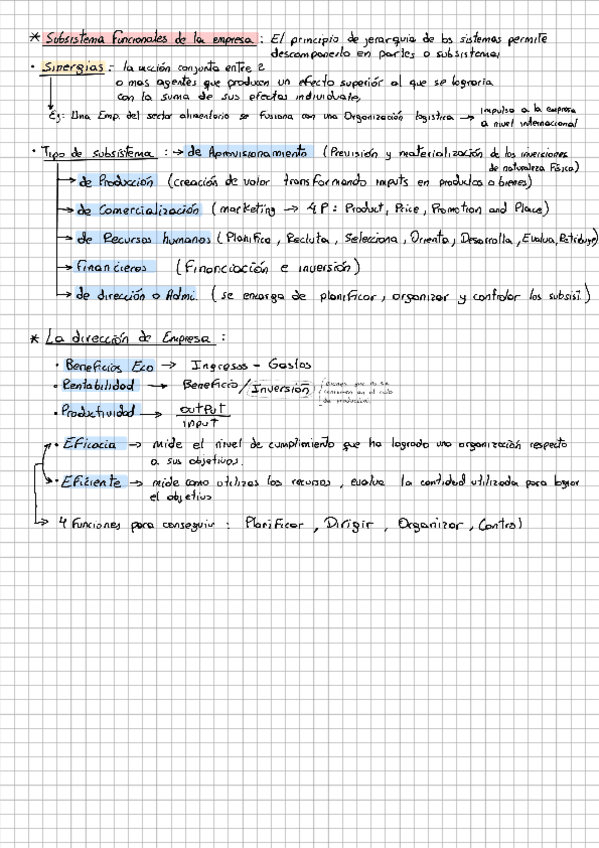 * Subsistema Funcionales de la empresa : El principio de jerarquia de los sistemas permite
descomponerlo en partes o subsistemas,
• Sinergias : la acción conjunta entre 2
o mas agentes que producen un efecto superiór al que se lograria
con la suma de sus efectos individuales,
Ej: Una Emp. del sector alimentario se Fusiona con una Organización logistica → impulso a la empresa
a nivel internacional
• Tipo de subsistema : → de Aprovisionamiento (Previsión y materialización de las inversiones
de naturaleza Física)
→ de Producción (creación de valor transformando imputs en productos o bienes)
→ de Comercialización (marketing → 4P : Product, Price, Promotion and Place)
→ de Recursos humanos (Planifica, Recluta, Selecciona, Orienta, Desarrolla, Evalua, Retribuye)
→ Financieros (Financiación e inversión)
→ de dirección o Admi. (se encarga de planificar, organizar y controlar los subsist.)
* La dirección de Empresa :
• Beneficios Eco → Ingresos - Gastos
• Rentabilidad → Beneficio / Inversión (Bienes que no se
consumen en el ciclo
de producción)
• Productividad → output
input
• Eficacia → mide el nivel de cumplimiento que ha logrado una organización respecto
a sus objetivos.
• Eficiente → mide como utilizas los recursos, evalua la cantidad utilizada para lograr
el objetivo
→ 4 Funciones para conseguir : Planificar, Dirigir, Organizar, Control